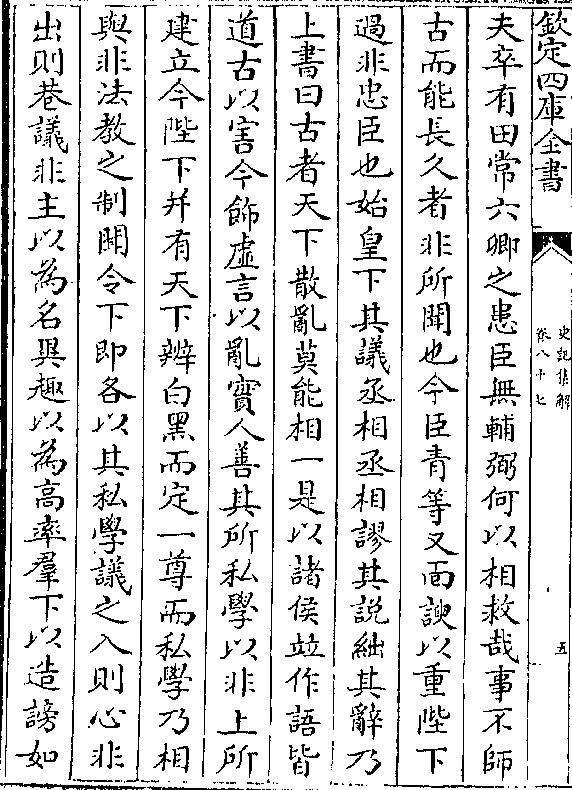 欽定四庫全書
史記集解
卷八十七
五
夫卒有田常六卿之患臣無輔弼何以相救哉事不師
古而能長久者非所聞也今臣青等又面諛以重陛下
過非忠臣也始皇下其議丞相丞相謬其説絀其辭乃
上書曰古者天下散亂莫能相一是以諸侯竝作語皆
道古以害今飾虛言以亂實人善其所私學以非上所
建立今陛下并有天下辨白黑而定一尊而私學乃相
與非法教之制聞令下即各以其私學議之入則心非
出則巷議非主以為名異趣以為高率羣下以造謗如